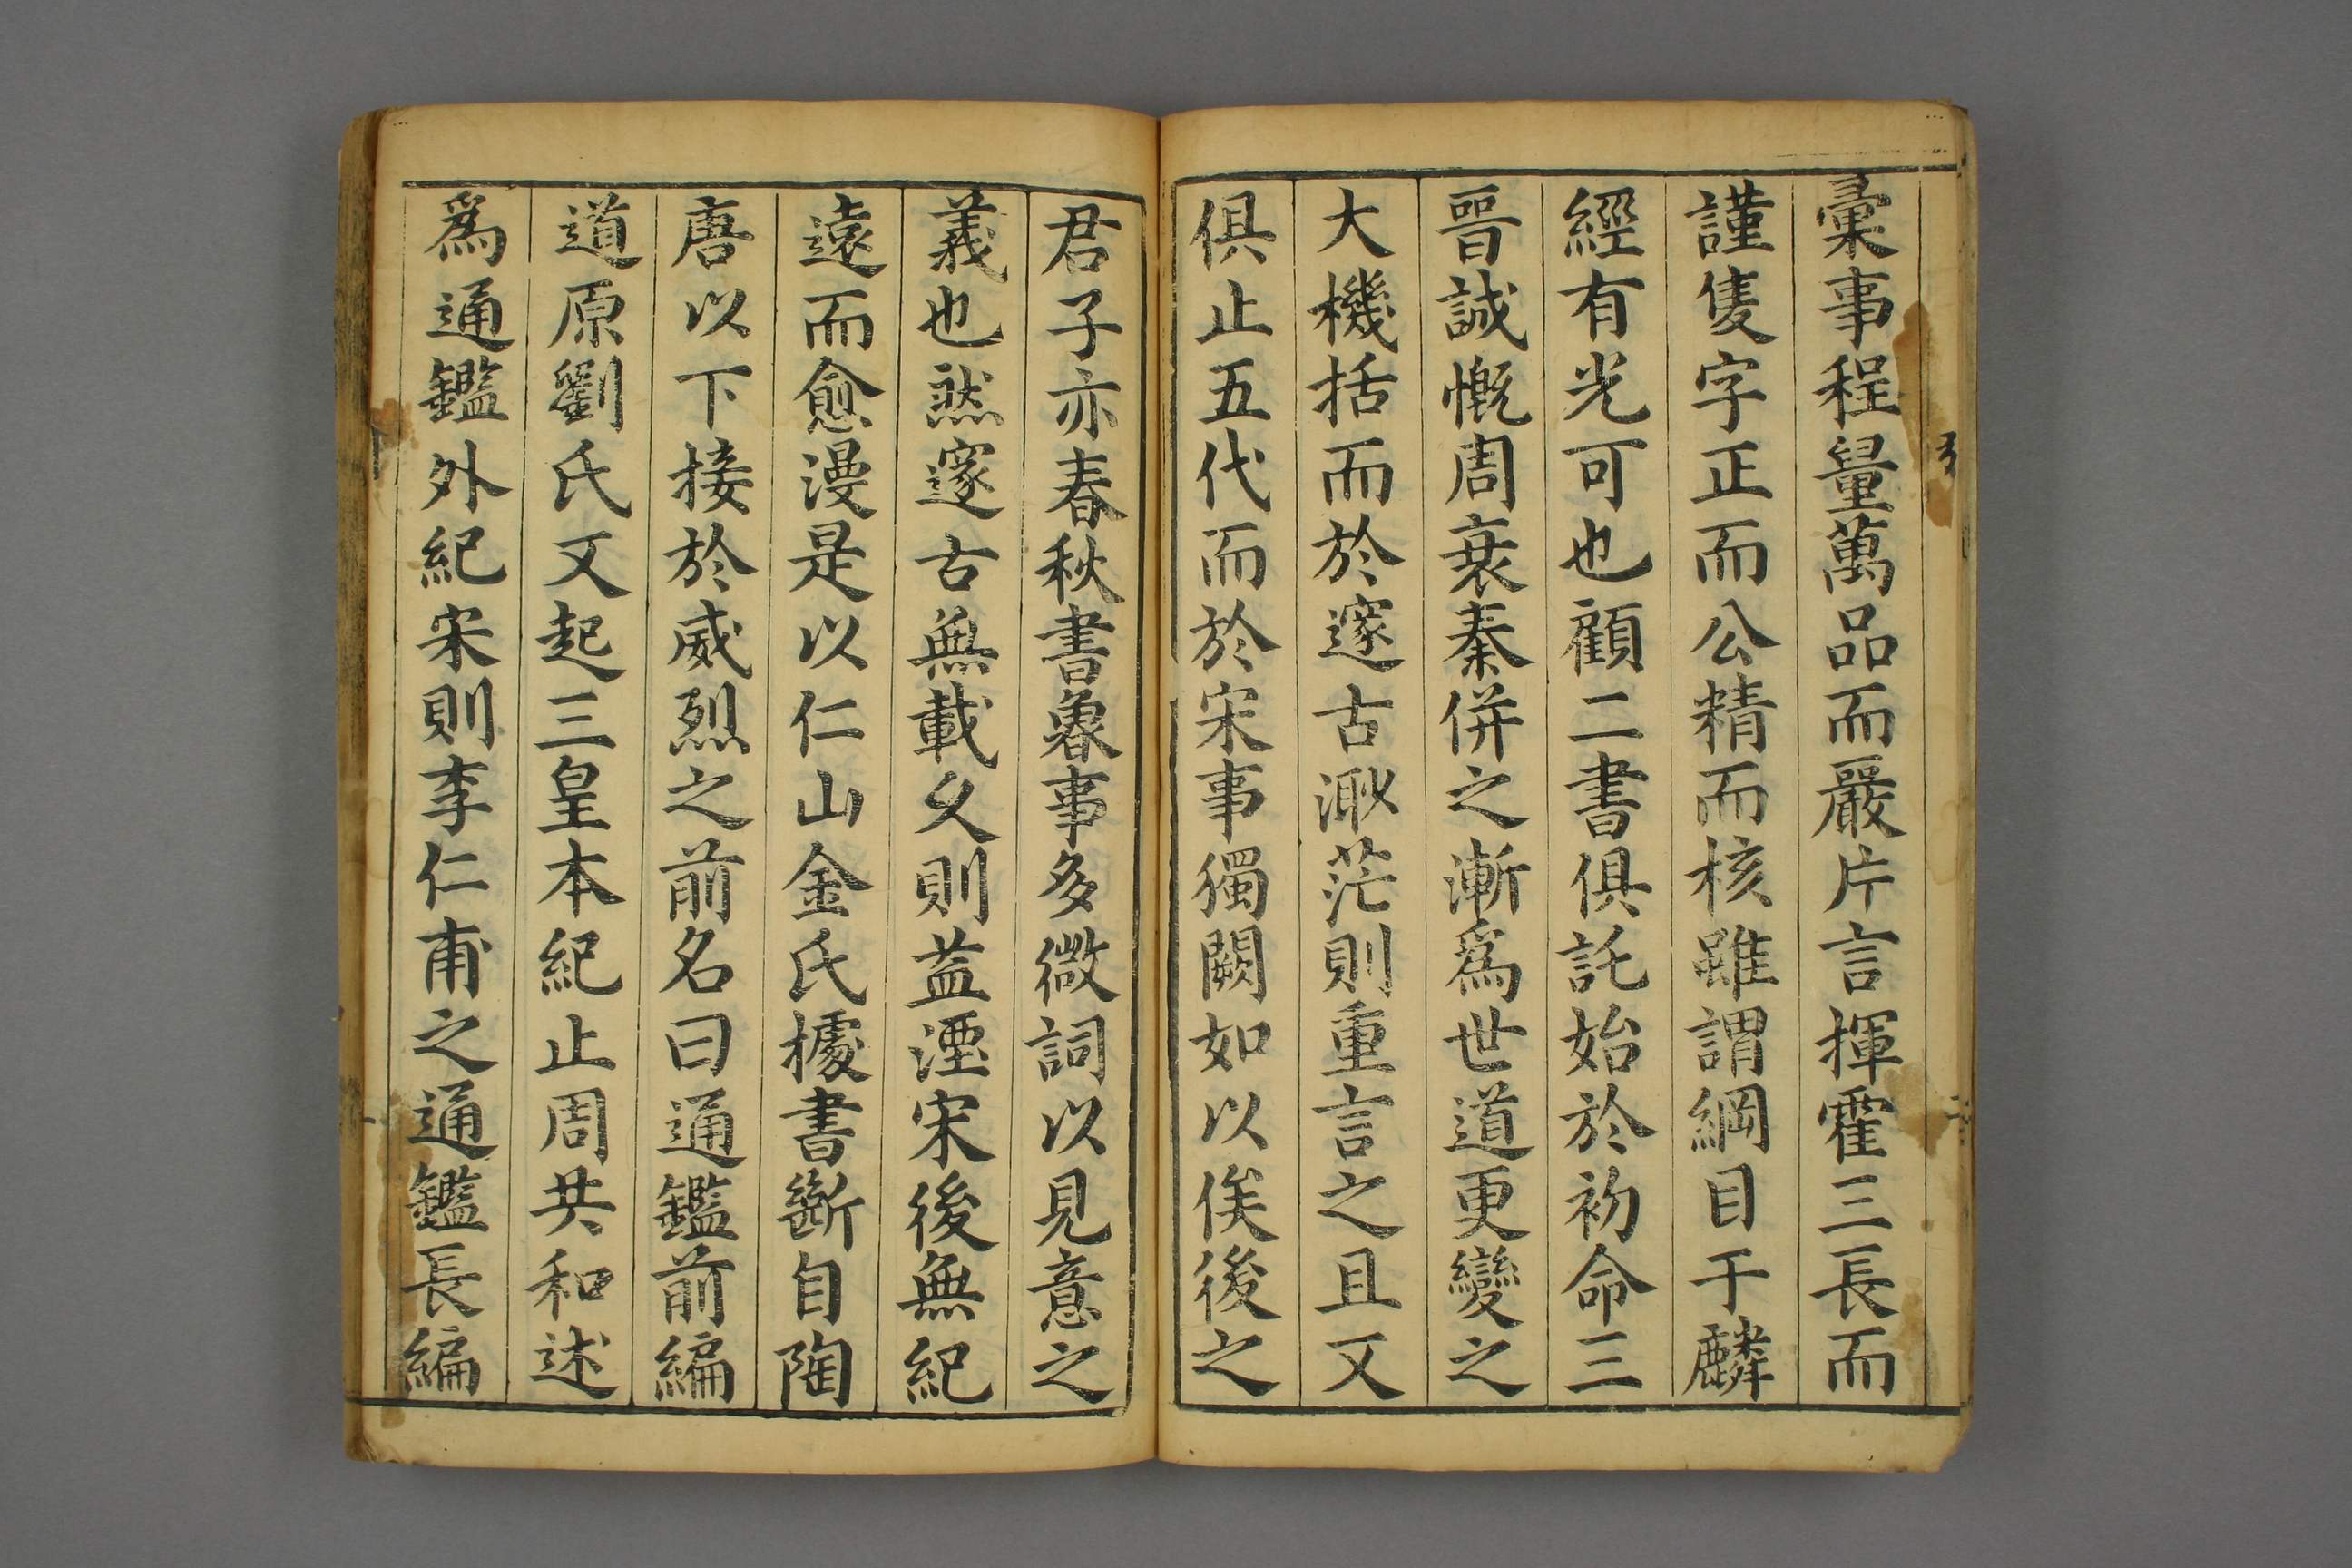 彙事程量萬品而嚴片言揮霍三長而
謹隻字正而公精而核雖謂綱目于麟
經有光可也顧二書俱託始於初命三
晉誠慨周衰秦併之漸為世道更變之
大機括而於邃古渺茫則重言之且又
俱止五代而於宋事獨闕如以俟後之
君子亦春秋書魯事多微詞以見意之
義也然邃古無載久則益湮宋後無紀
遠而愈漫是以仁山金氏據書斷自陶
唐以下接於威烈之前名曰通鑑前編
道原劉氏又起三皇本紀止周共和述
為通鑑外紀宋則李仁甫之通鑑長編